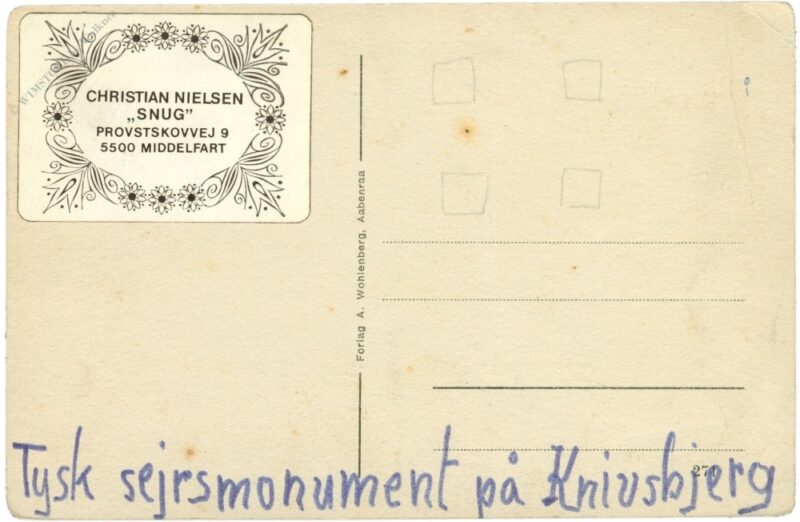 CHRISTIAN NIELSEN
„SNUG”
PROVSTSKOVVEJ 9
5500 MIDDELFART
Forlag A. Wohlenberg, Aabenraa
271
Tysk sejrsmonument på Knivsbjerg